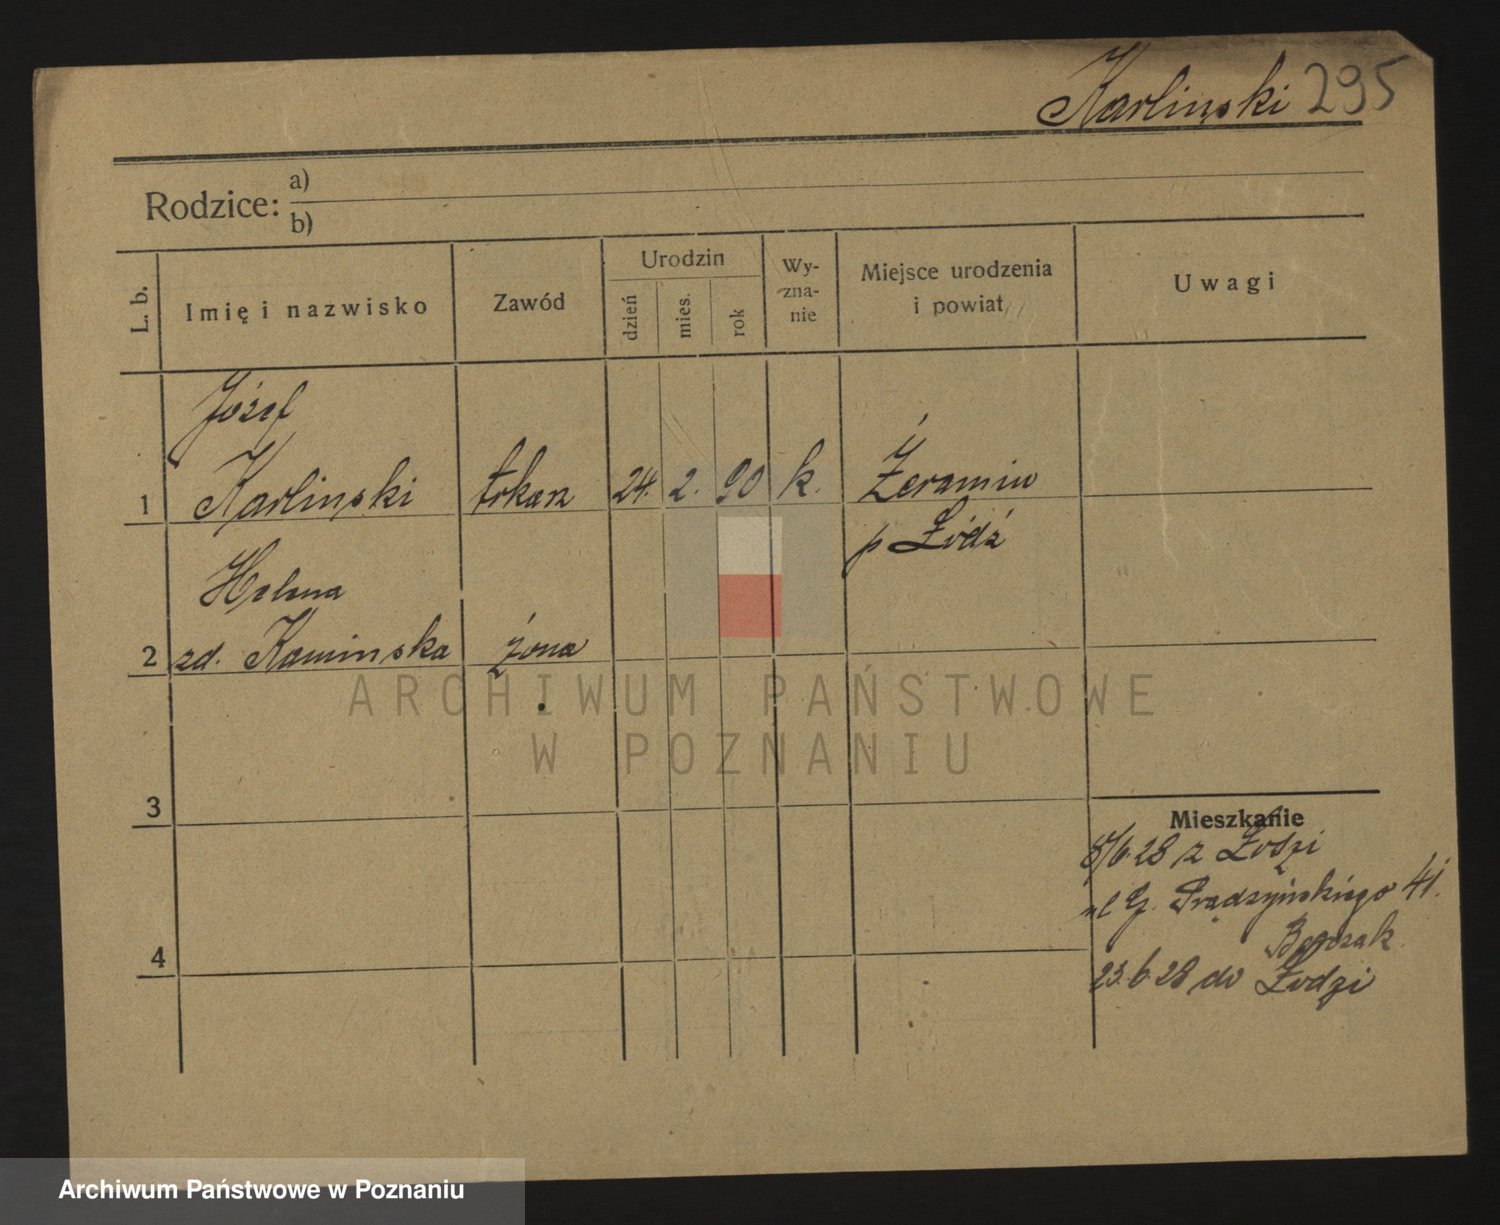 Karlinski 295
Rodzice: a)
b)
L. b.
Imię i nazwisko
Zawód
Urodzin
dzień
mies.
rok
Wy-
zna-
nie
Miejsce urodzenia
i powiat
Uwagi
Józef
1 Karlinski tokarz 24. 2. 90 k. Żeramin
p Łódź
Helena
2 zd. Kaminska żona
3
4
Mieszkanie
8/6 28 z Łodzi
ul G. Prądzyńskiego 41.
23.6.28 do Łodzi
ARCHIWUM PAŃSTWOWE
W POZNANIU
Archiwum Państwowe w Poznaniu